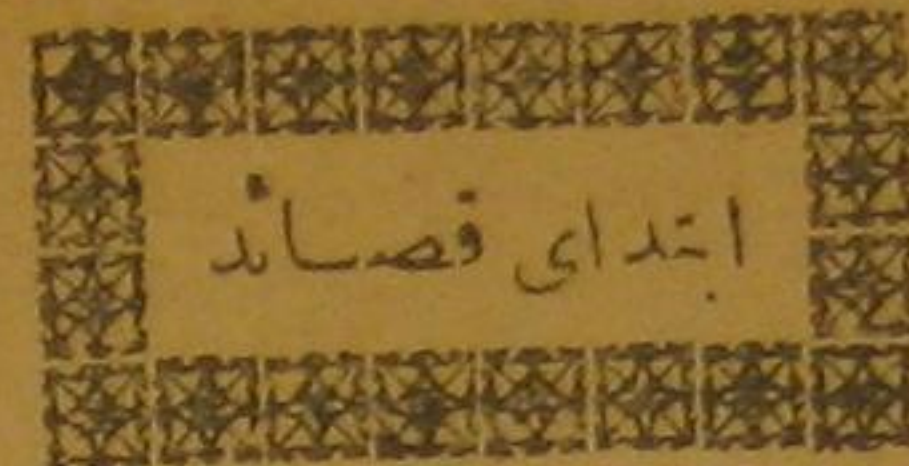 ابتدای قصائد